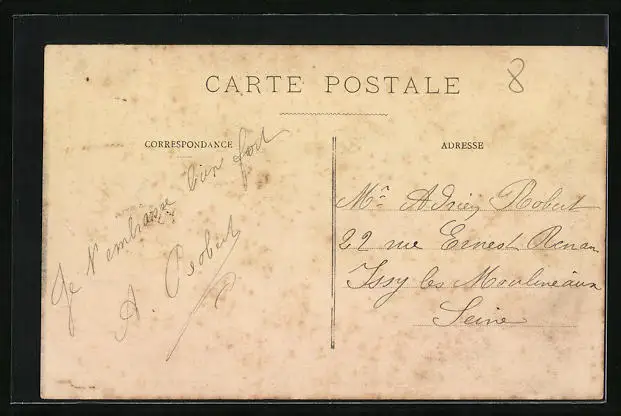 CARTE POSTALE
8
CORRESPONDANCE
ADRESSE
Je t'embrasse bien fort
A. Robert
Mr Adrien Robert
22 rue Ernest Renan
Issy les Moulineaux
Seine